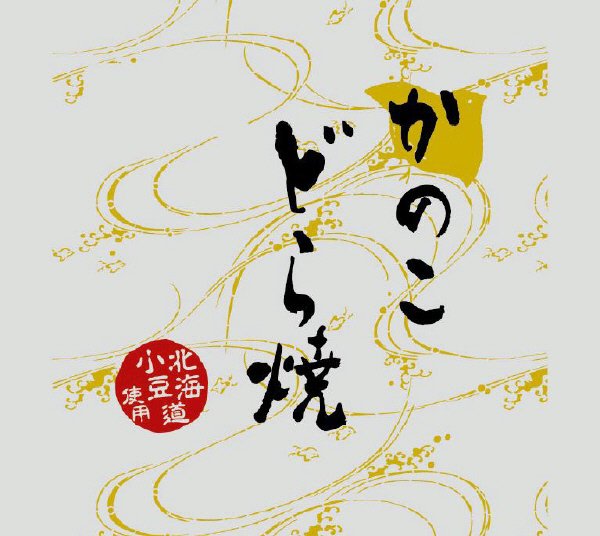 かのこ
どら焼
北海道
小豆
使用